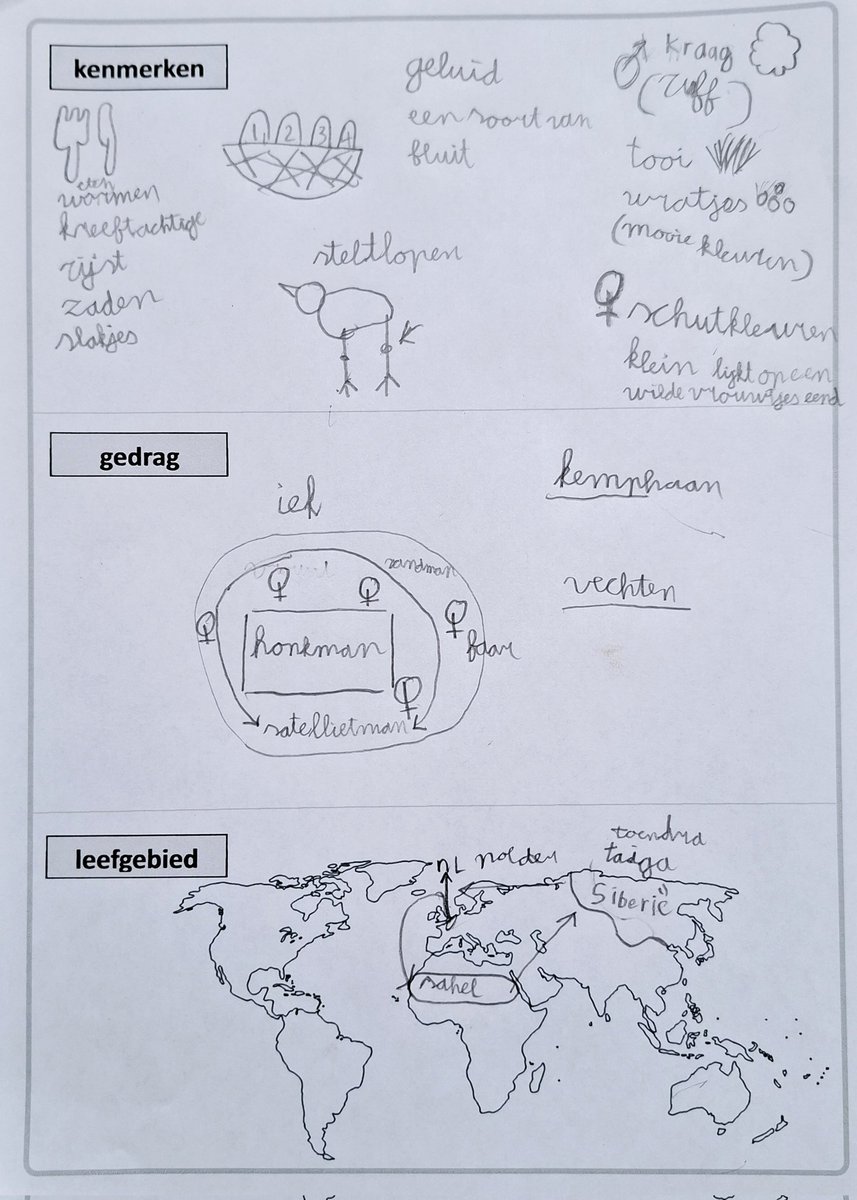 kenmerken
eten
wormen
kreeftachtige
rijst
zaden
slakjes
1 2 3 4
geluid
een soort van
fluit
steltlopen
K
♂ kraag
(ruff)
tooi
wratjes
(mooie kleuren)
♀ schutkleuren
klein lijkt op een
wilde vrouwtjes eend
gedrag
kemphaan
vechten
randman
♀ ♀
♀ ♀
honkman
faar
♀
satellietman
leefgebied
toendra
taiga
NL polder
Siberië
sahel